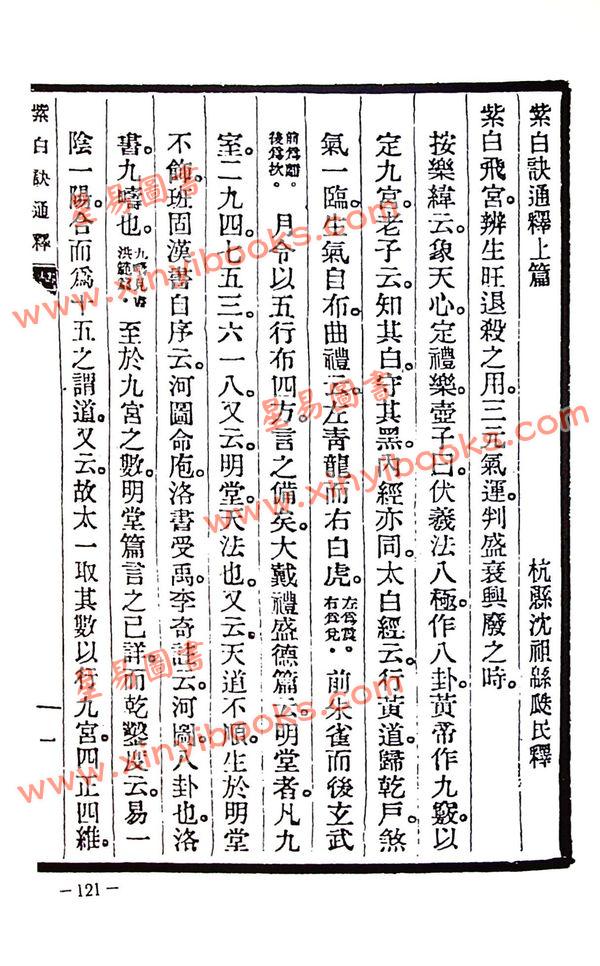 紫白訣通釋上篇
杭縣沈祖緜瓞民釋
紫白飛宮。辨生旺退殺之用。三元氣運。判盛衰興廢之時。
按樂緯云。象天心。定禮樂。壺子曰。伏羲法八極。作八卦。黃帝作九竅。以
定九宮。老子云。知其白。守其黑。內經亦同。太白經云。行黃道。歸乾戶。煞
氣一臨。生氣自布。曲禮云。左青龍而右白虎。左爲震。右爲兌。前朱雀而後玄武
前爲離。後爲坎。月令以五行布四方。言之備矣。大戴禮盛德篇云。明堂者。凡九
室。二九四七五三六一八。又云。明堂。天法也。又云。天道不順。生於明堂
不飾。班固漢書自序云。河圖命庖。洛書受禹。李奇註云。河圖。八卦也。洛
書。九疇也。九疇見書洪範。至於九宮之數。明堂篇言之已詳。而乾鑿度云。易一
陰一陽。合而爲十五之謂道。又云。故太一取其數以行九宮。四正四維。
紫白訣通釋 上
一一
-121-
星易圖書
www.xinyibooks.com
星易圖書
www.xinyibooks.com
星易圖書
www.xinyibooks.com